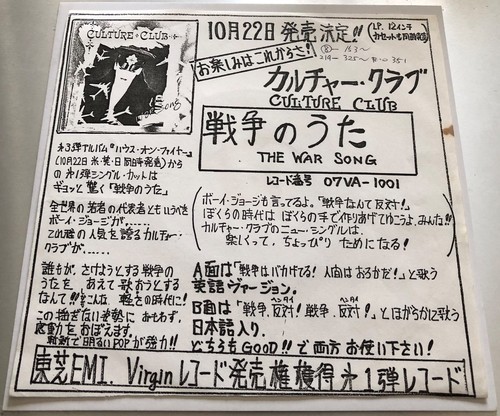 CULTURE CLUB
War Song
10月22日 発売決定!!
(LP. 12インチ
カセットも同時発売)
お楽しみはこれからさ!
カルチャー・クラブ
CULTURE CLUB
戦争のうた
THE WAR SONG
レコード番号 07VA-1001
第3弾アルバム「ハウス・オン・ファイヤー」
(10月22日 米・英・日 同時発売)から
の 第1弾シングル・カットは
ギョッと驚く「戦争のうた」
全世界の若者の代表者ともいうべき
ボーイ・ジョージが……
これ程の人気を誇るカルチャー・
クラブが……
誰もが、さけようとする戦争の
うたを あえて歌おうとする
なんて!!こんな 軽さの時代に!
この強ぎない姿勢に おもわず、
感動をおぼえます。
斬新で明るいPOPが強力!!
ボーイ・ジョージも言ってるよ。「戦争なんて反対!」
ぼくらの時代は ぼくらの手で作りあげてゆこうよ、みんな!!
カルチャー・クラブのニュー・シングルは、
楽しくって、ちょっぴり ためになる!
A面は「戦争はバカげてる! 人間はおろかだ!」と歌う
英語ヴァージョン。
B面は「戦争、反対! 戦争、反対!」と、ほがらかに歌う
ヘンタイ ヘンタイ
日本語入り。
どちらもGOOD!!で 両方お使い下さい!
東芝EMI. Virginレコード発売権獲得第1弾レコード